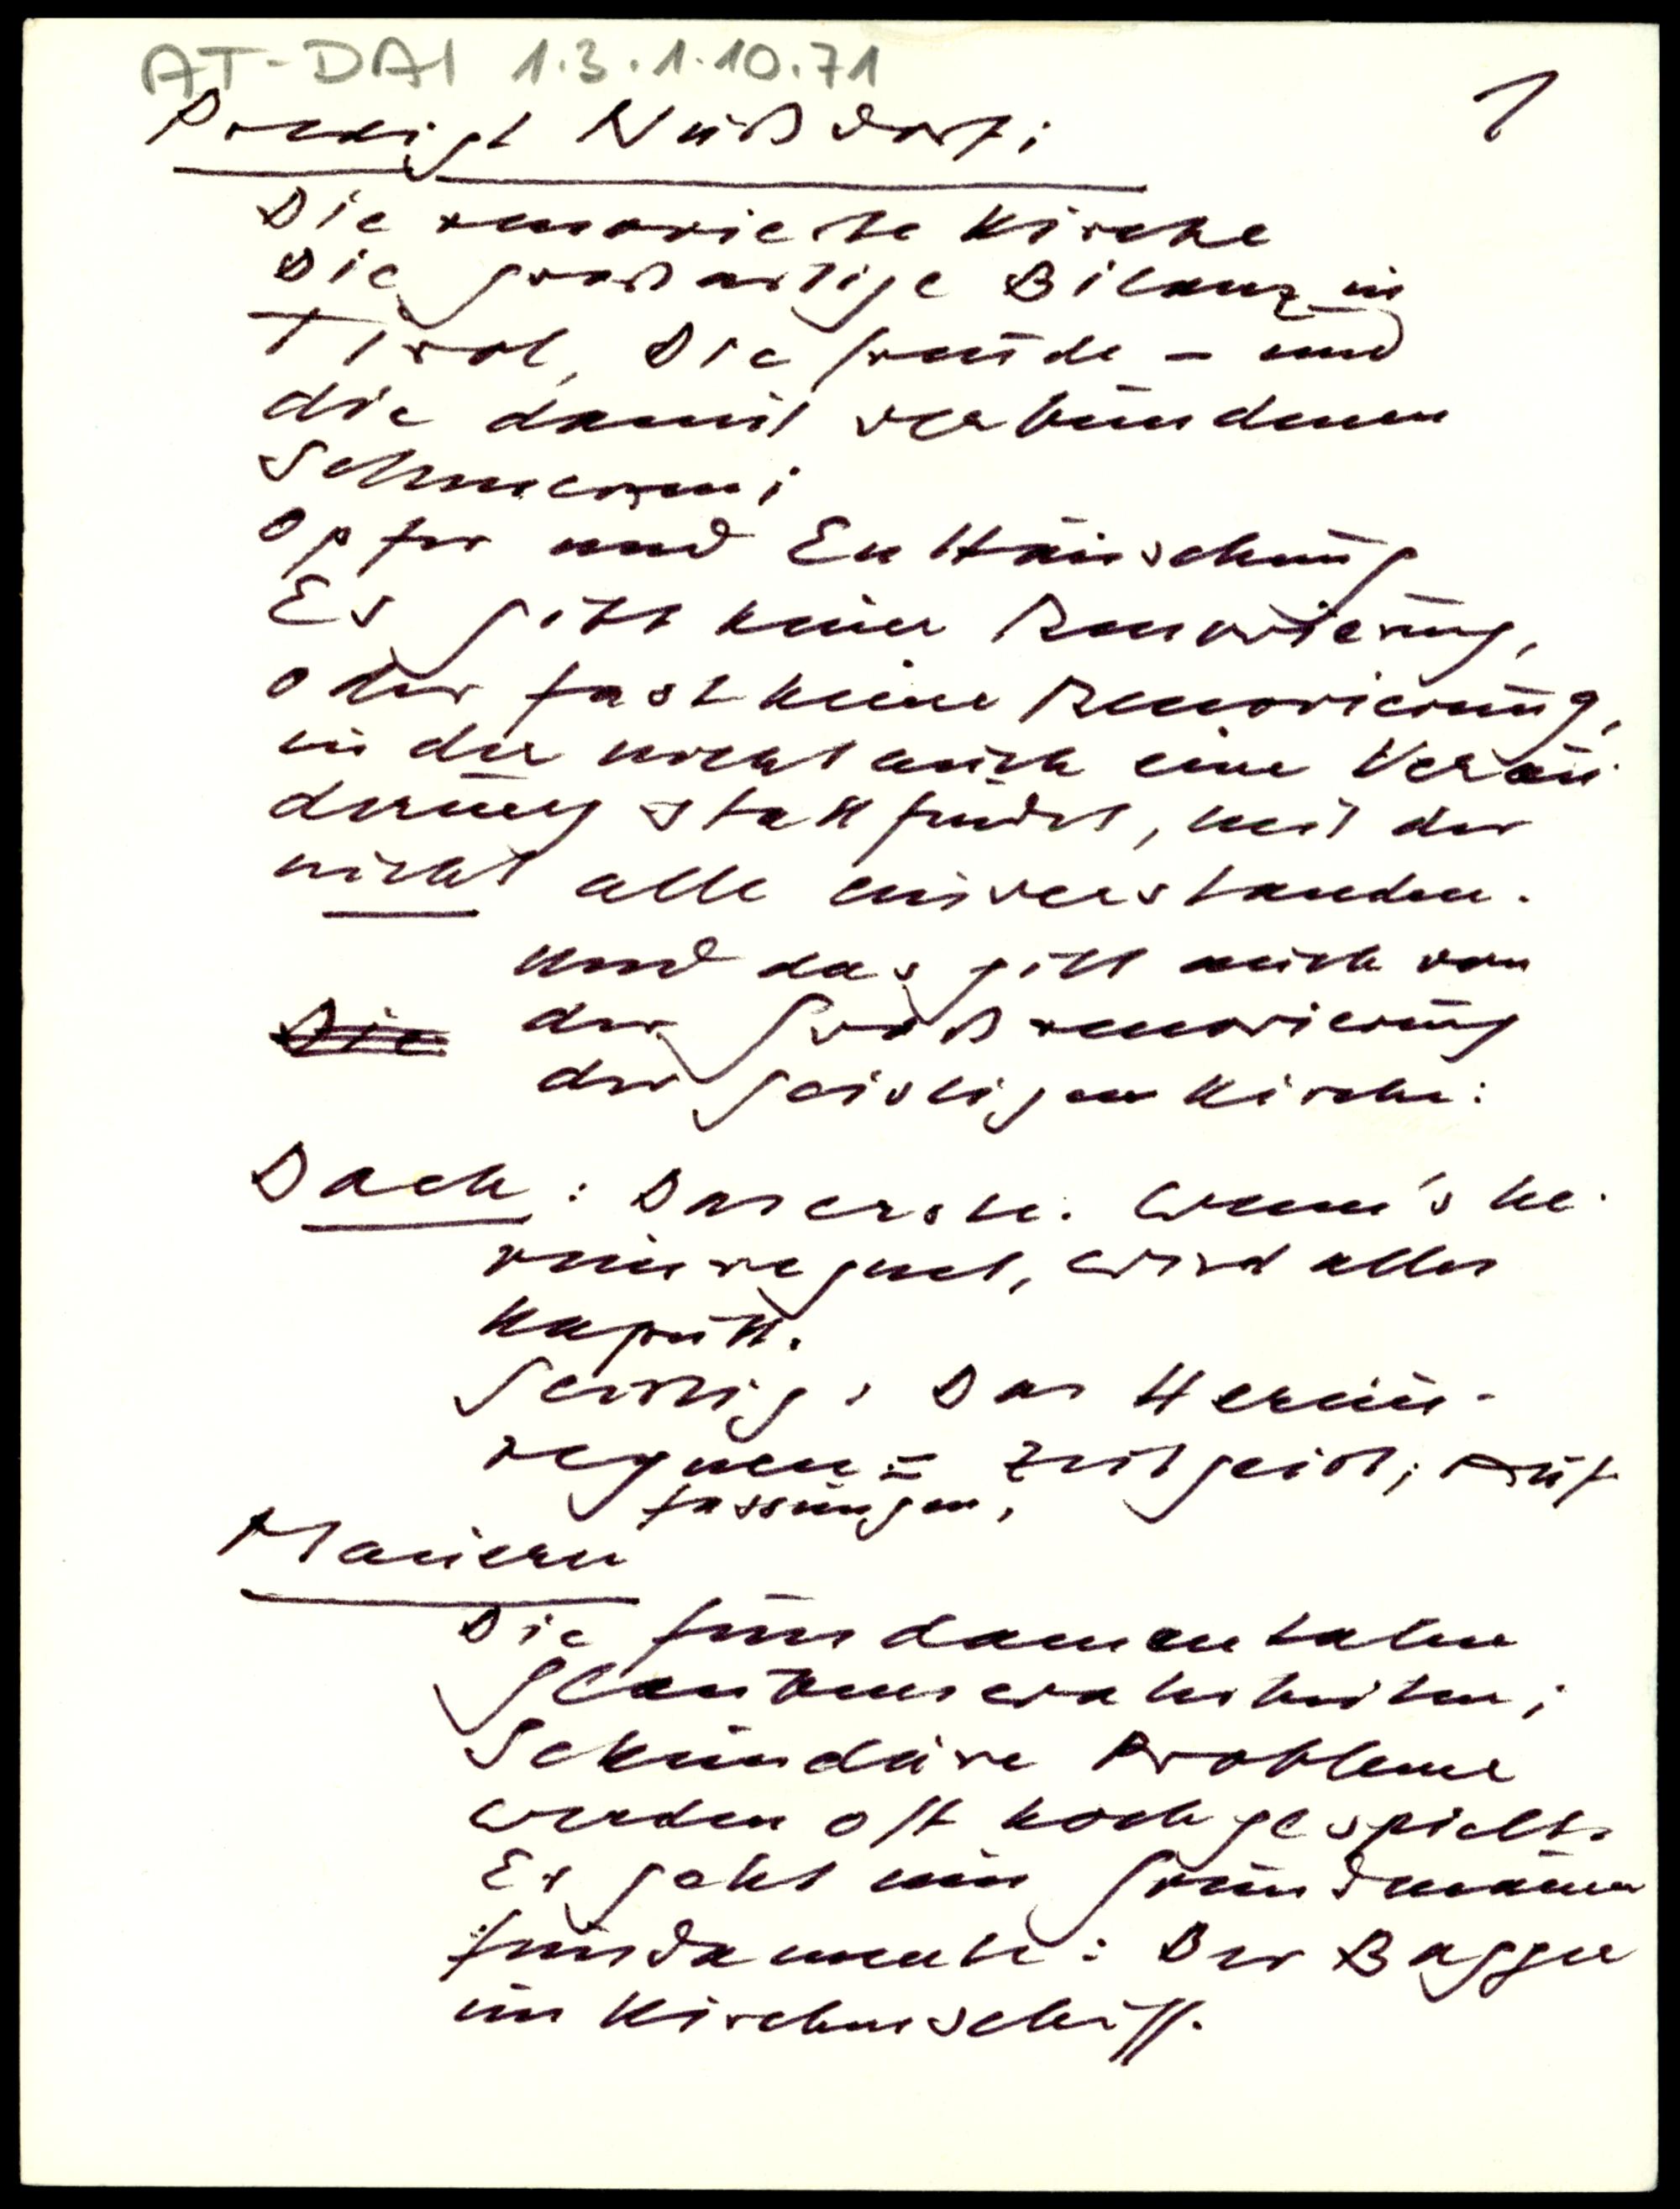 AT-DAI 1.3.1.10.71
1
Predigt Nußdorf:
Die renovierte Kirche
Die großartige Bilanz in
Tirol, Die Freude - und
die damit verbundenen
Schmerzen;
Opfer und Enttäuschung
Es gibt keine Renovierung,
oder fast keine Renovierung,
in der nicht auch eine Verän-
derung stattfindet, mit der
nicht alle einverstanden.
und das gilt auch von
Die der Großrenovierung
der geistigen Kirche:
Dach: Das erste. Wenn's he-
reinregnet, wird alles
kaputt.
Geistig: Das Herein-
regnen = Zeitgeist; Auf
fassungen,
Mauern
Die fundamentalen
Glaubenswahrheiten;
Sekundäre Probleme
werden oft hochgespielt.
Es geht um Grundmauern
Fundamente: Der Bagger
im Kirchenschiff.